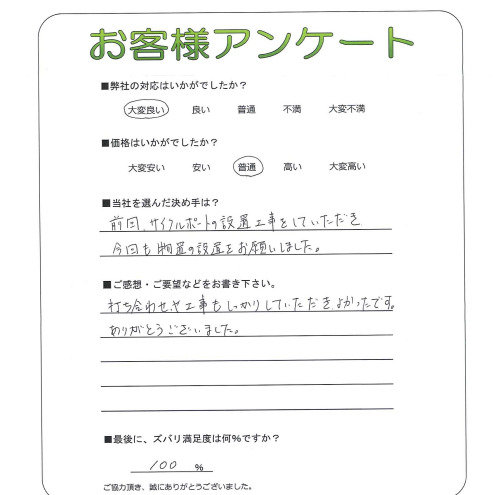 お客様アンケート
■弊社の対応はいかがでしたか?
大変良い 良い 普通 不満 大変不満
■価格はいかがでしたか?
大変安い 安い 普通 高い 大変高い
■当社を選んだ決め手は?
前回、サイクルポートの設置工事をしていただき
今回も物置の設置をお願いしました。
■ご感想・ご要望などをお書き下さい。
打ち合わせや工事もしっかりしていただきよかったです。
ありがとうございました。
■最後に、ズバリ満足度は何%ですか?
100 %
ご協力頂き、誠にありがとうございました。